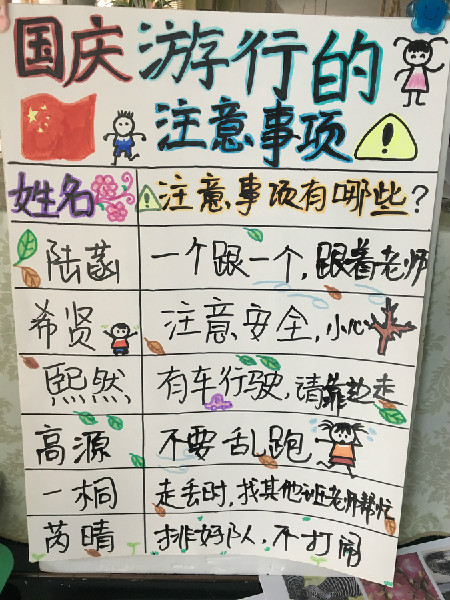 国庆游行的
注意事项
姓名 注意事项有哪些?
陆菡 一个跟一个,跟着老师
希贤 注意安全,小心
熙然 有车行驶,请靠边走
高源 不要乱跑
一桐 走丢时,找其他班老师帮忙
芮晴 排好队,不打闹